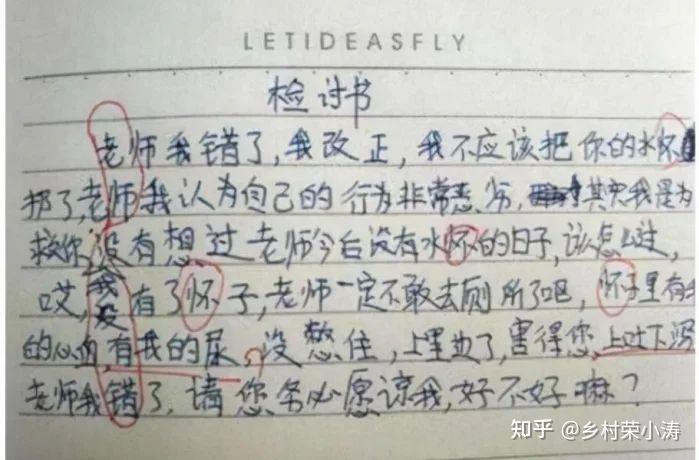 LETIDEASFLY
检讨书
老师我错了，我改正，我不应该把你的水怀
扔了,老师我认为自己的行为非常恶劣,其实我是为
救你,没有想过老师今后没有水怀的日子,该怎么过,
哎,我没有了怀子,老师一定不敢去厕所了吧,怀子里有
的心血,有我的尿,没憋住,上里边了,害得您,上吐下泻
老师我错了,请您务必愿谅我,好不好嘛?
知乎 @乡村荣小涛